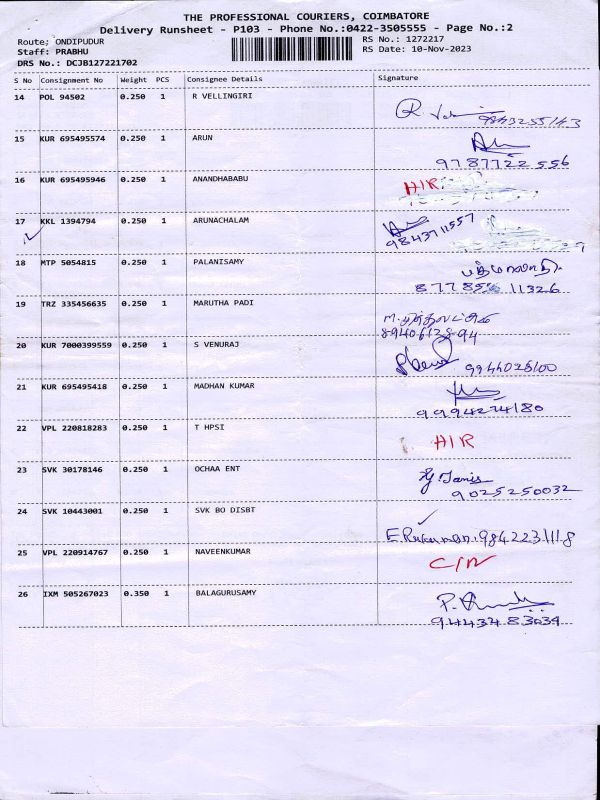 THE PROFESSIONAL COURIERS, COIMBATORE
Delivery Runsheet - P103 - Phone No.:0422-3505555 - Page No.:2
Route; ONDIPUDUR RS No.: 1272217
Staff: PRABHU RS Date: 10-Nov-2023
DRS No.: DCJB127221702
S No Consignment No Weight PCS Consignee Details Signature
14 POL 94502 0.250 1 R VELLINGIRI
9843255143
15 KUR 695495574 0.250 1 ARUN
9787722556
16 KUR 695495946 0.250 1 ANANDHABABU HIR
17 KKL 1394794 0.250 1 ARUNACHALAM
9843711557
18 MTP 5054815 0.250 1 PALANISAMY
11326
19 TRZ 335456635 0.250 1 MARUTHA PADI
20 KUR 7000399559 0.250 1 S VENURAJ
9944026100
21 KUR 695495418 0.250 1 MADHAN KUMAR
9994274180
22 VPL 220818283 0.250 1 T HPSI HIR
23 SVK 30178146 0.250 1 OCHAA ENT
9025250032
24 SVK 10443001 0.250 1 SVK BO DISBT
9842231118
25 VPL 220914767 0.250 1 NAVEENKUMAR
26 IXM 505267023 0.350 1 BALAGURUSAMY
9443483039